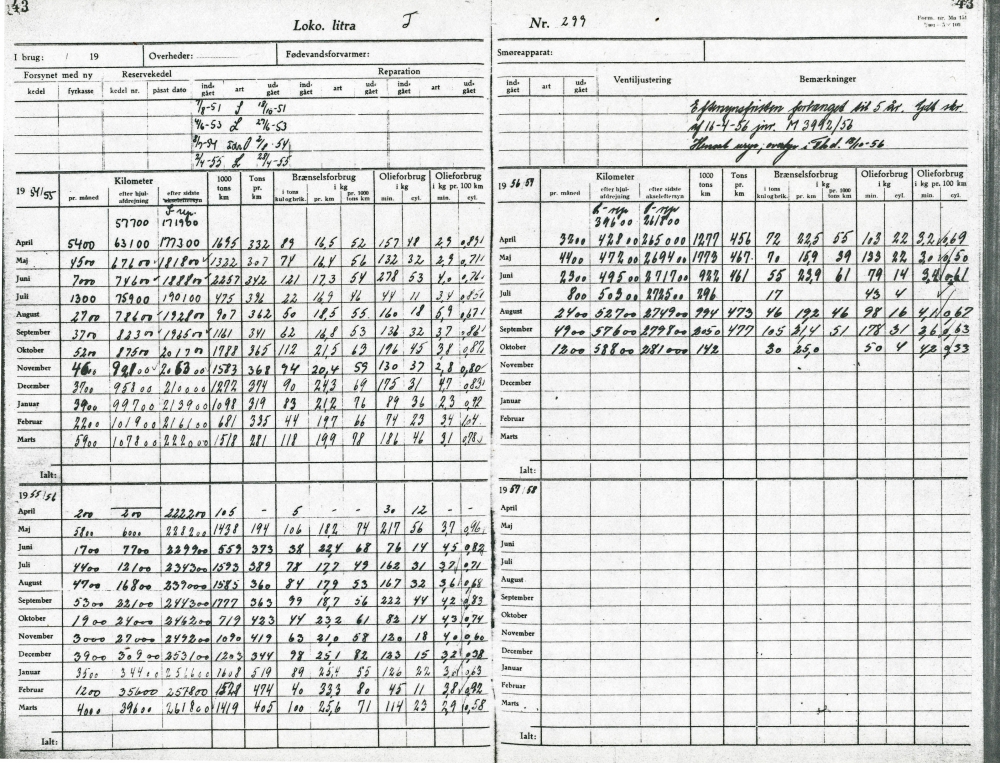 43
43
Loko. litra J
Nr. 299
Form. nr. Ma 151
I brug: / 19 Overheder: Fødevandsforvarmer:
Smøreapparat:
Forsynet med ny Reservekedel Reparation
kedel fyrkasse kedel nr. påsat dato ind-gået art ud-gået ind-gået art ud-gået ind-gået art ud-gået
ind-gået art ud-gået Ventiljustering Bemærkninger
7/8-51 L 18/10-51
4/6-53 L 27/6-53
L 28/4-55
til 5 år.
af 16-4-56 jnr. M 3992/56
19 54/55 Kilometer 1000 tons km Tons pr. km Brænselsforbrug i kg Olieforbrug i kg Olieforbrug i kg pr. 100 km
pr. måned efter hjul-afdrejning efter sidste i tons kul og brik. pr. km pr. 1000 tons km min. cyl. min. cyl.
57700 171900
April 5400 63100 177300 1695 332 89 16,5 52 157 48 2,9
Maj 4500 67600 181800 1332 307 74 16,4 56 132 32 2,9
Juni 7000 74600 188800 2257 342 121 17,3 54 278 53 4,0
Juli 1300 75900 190100 475 396 22 16,9 46 44 11 3,4
August 2700 78600 192800 907 362 50 18,5 55 160 18 5,9
September 3700 82300 196500 1161 341 62 16,8 53 136 32 3,7
Oktober 5200 87500 201700 1788 365 112 21,5 63 196 45 3,8
November 1583 368 94 20,4 59 130 37 2,8
December 3700 95800 210000 1272 374 90 24,3 69 175 31 4,7
Januar 3900 99700 213900 1098 319 83 21,2 76 89 36 2,3
Februar 2200 101900 216100 681 335 44 19,7 66 74 23 3,4
Marts 5900 107800 222000 1518 281 118 19,9 78 186 46 3,1
Ialt:
19 55/56
April 200 200 222200 105 - 5 - - 30 12 - -
Maj 5800 6000 228200 1438 194 106 18,2 74 217 56 3,7 0,96
Juni 1700 7700 229900 559 373 38 22,4 68 76 14 4,5 0,82
Juli 4400 12100 234300 1593 389 78 17,7 49 162 31 3,7 0,71
August 4700 16800 239000 1585 360 84 17,9 53 167 32 3,6 0,68
September 5300 22100 244300 1777 363 99 18,7 56 222 44 4,2 0,83
Oktober 1900 24000 246200 719 423 44 23,2 61 82 14 4,3 0,74
November 3000 27000 249200 1090 419 63 21,0 58 120 18 4,0 0,60
December 3900 30900 253100 1203 344 98 25,1 82 123 15 3,2 0,38
Januar 3500 34400 256600 1608 519 89 25,4 55 126 22 3,6 0,63
Februar 1200 35600 257800 1528 474 40 33,3 80 45 11 3,8 0,92
Marts 4000 39600 261800 1419 405 100 25,6 71 114 23 2,9 0,58
Ialt:
19 56/57 Kilometer 1000 tons km Tons pr. km Brænselsforbrug i kg Olieforbrug i kg Olieforbrug i kg pr. 100 km
pr. måned efter hjul-afdrejning efter sidste akseleftersyn i tons kul og brik. pr. km pr. 1000 tons km min. cyl. min. cyl.
39600 261800
April 3200 42800 265000 1277 456 72 22,5 55 103 22 3,2 0,69
Maj 4400 47200 269400 1773 467 70 15,9 39 133 22 3,0 0,50
Juni 2300 49500 271700 922 461 55 23,9 61 79 14 3,4 0,61
Juli 800 50300 272500 296 17 43 4
August 2400 52700 274900 994 473 46 19,2 46 98 16 4,1 0,67
September 4900 57600 279800 2050 477 105 21,4 51 178 31 3,6 0,63
Oktober 1200 58800 281000 142 30 25,0 50 4 4,2 0,33
November
December
Januar
Februar
Marts
Ialt:
19 57/58
April
Maj
Juni
Juli
August
September
Oktober
November
December
Januar
Februar
Marts
Ialt: